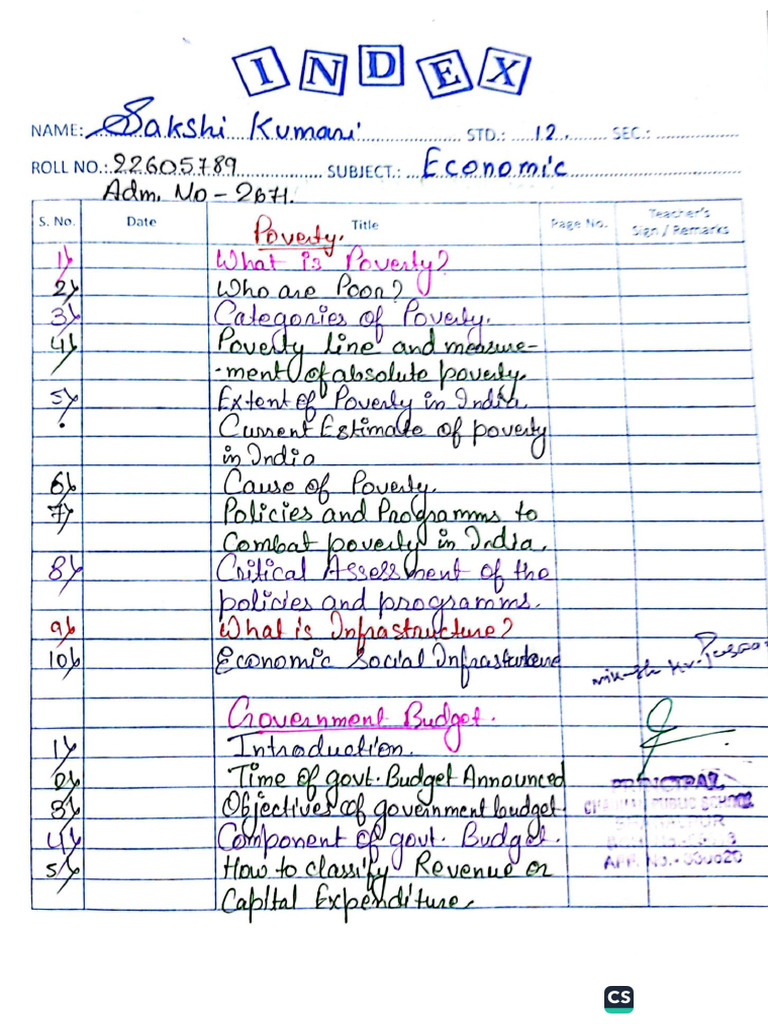 INDEX
NAME: Sakshi Kumari STD.: 12. SEC.:
ROLL NO.: 22605789 SUBJECT.: Economic
Adm. No - 2671.
S. No. Date Title Page No. Teacher's Sign / Remarks
Poverty.
1) What is Poverty?
2) Who are Poor?
3) Categories of Poverty.
4) Poverty line and measure-
-ment of absolute poverty.
5) Extent of Poverty in India.
• Current Estimate of poverty
in India
6) Cause of Poverty.
7) Policies and Programms to
Combat poverty in India.
8) Critical Assessment of the
policies and programms.
9) What is Infrastructure?
10) Economic Social
Government Budget.
1) Introduction.
2) Time of govt. Budget Announced
3) Objectives of government budget
4) Component of govt. Budget.
5) How to classify Revenue or
Capital Expenditure.
PRINCIPAL
PUBLIC SCHOOL
CS